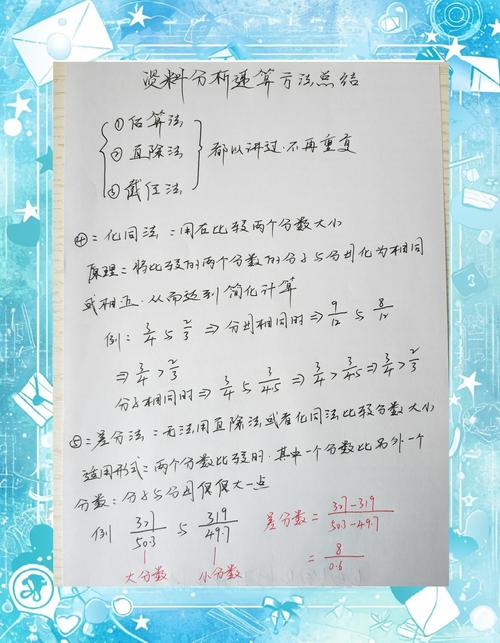 资料分析速算方法总结
① 估算法
② 直除法 都以讲过.不再重复
③ 截位法
④：化同法：用在比较两个分数大小
原理：将比较的两个分数的分子与分母化为相同
或相近.从而达到简化计算
例：3/4 与 2/3 ⇒ 分母相同时 ⇒ 9/12 与 8/12
⇒ 3/4 > 2/3
分子相同时 ⇒ 3/4 与 3/4.5 ⇒ 3/4 > 3/4.5 ⇒ 3/4 > 2/3
⑤：差分法：无法用直除法或者化同法比较分数大小
适用形式：两个分数比较时.其中一个分数比另外一个
分数：分子与分母仅仅大一点
例 327/50.3 与 319/49.7 差分数 = 327-319/50.3-49.7
大分数 小分数 = 8/0.6